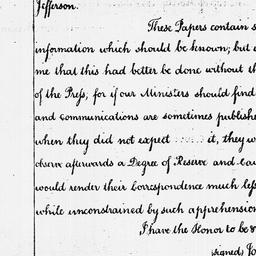 Jefferson.
These Papers contain s
information which should be known; but
me that this had better be done without th
of the Press, for if our Ministers should find
and communications are sometimes publishe
when they did not expect ...... it, they w
observe afterwards a Degree of Reserve and Cau
would render their Correspondence much less
while unconstrained by such apprehension
I have the Honor to be
signed Jo